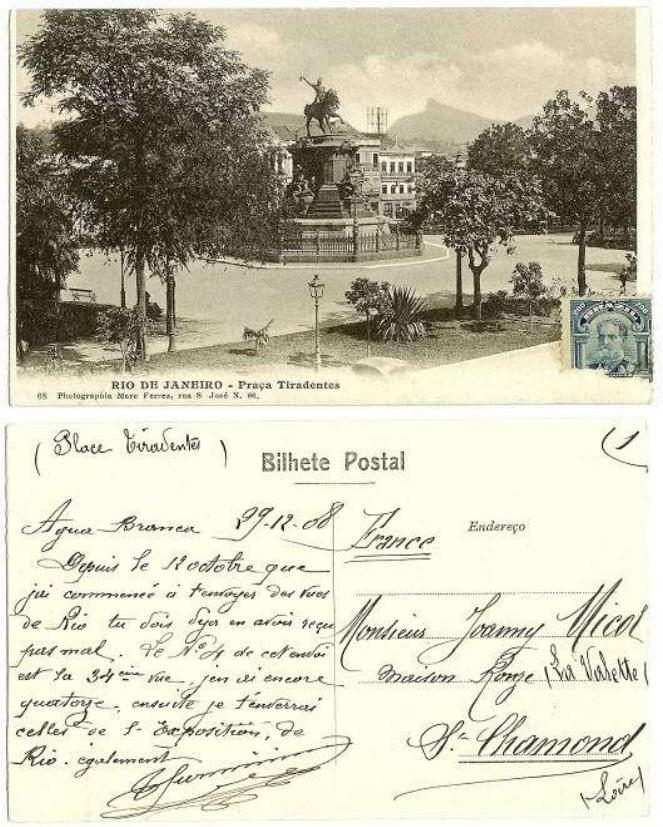 RIO DE JANEIRO - Praça Tiradentes
68 Photographia Marc Ferrez, rua S. José N. 96.
200 BRAZIL 200
(Place Tiradentes)
Bilhete Postal
(1
Agua Branca 29-12-08
Depuis le 12 octobre que
j'ai commencé à t'envoyer des vues
de Rio tu dois dejà en avoir reçu
pas mal. Le No 4 de cet envoi
est la 34eme vue, j'en ai encore
quatorze, ensuite je t'enverrai
celles de l'Exposition, de
Rio. egalement
France
Endereço
Monsieur Joanny Micol
maison Ronze (La Valette)
St Chamond
(Loire)